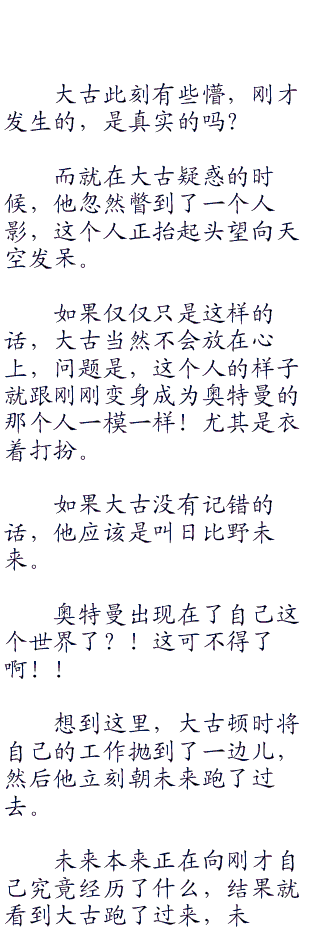 大古此刻有些懵，刚才
发生的，是真实的吗？
而就在大古疑惑的时
候，他忽然瞥到了一个人
影，这个人正抬起头望向天
空发呆。
如果仅仅只是这样的
话，大古当然不会放在心
上，问题是，这个人的样子
就跟刚刚变身成为奥特曼的
那个人一模一样！尤其是衣
着打扮。
如果大古没有记错的
话，他应该是叫日比野未
来。
奥特曼出现在了自己这
个世界了？！这可不得了
啊！！
想到这里，大古顿时将
自己的工作抛到了一边儿，
然后他立刻朝未来跑了过
去。
未来本来正在向刚才自
己究竟经历了什么，结果就
看到大古跑了过来，未